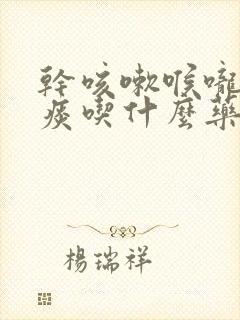 幹咳嗽喉嚨
痰喫什麼藥
楊瑞祥